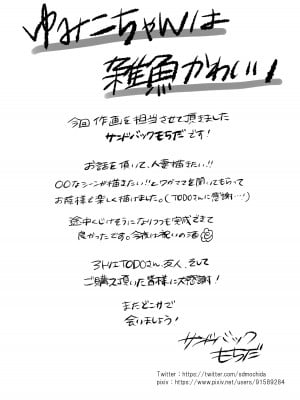 ゆみこちゃんは
雑魚かわいい
今回作画を担当させて頂きました
サンドバックもちだです!
お話を頂いて、人妻描きたい!!
〇〇なシーンが描きたい!!とワガママを聞いてもらって
お陰様で楽しく描けました。(TODOさんに感謝…!)
途中くじけそうになりつつも完成できて
良かったです。今夜は祝いの酒
TODOさん、友人、そして
ご購入頂いた皆様に大感謝!
またどこかで
会いましょう!
サンドバック
もちだ
Twitter : https://twitter.com/sdmochida
pixiv : https://www.pixiv.net/users/91589284